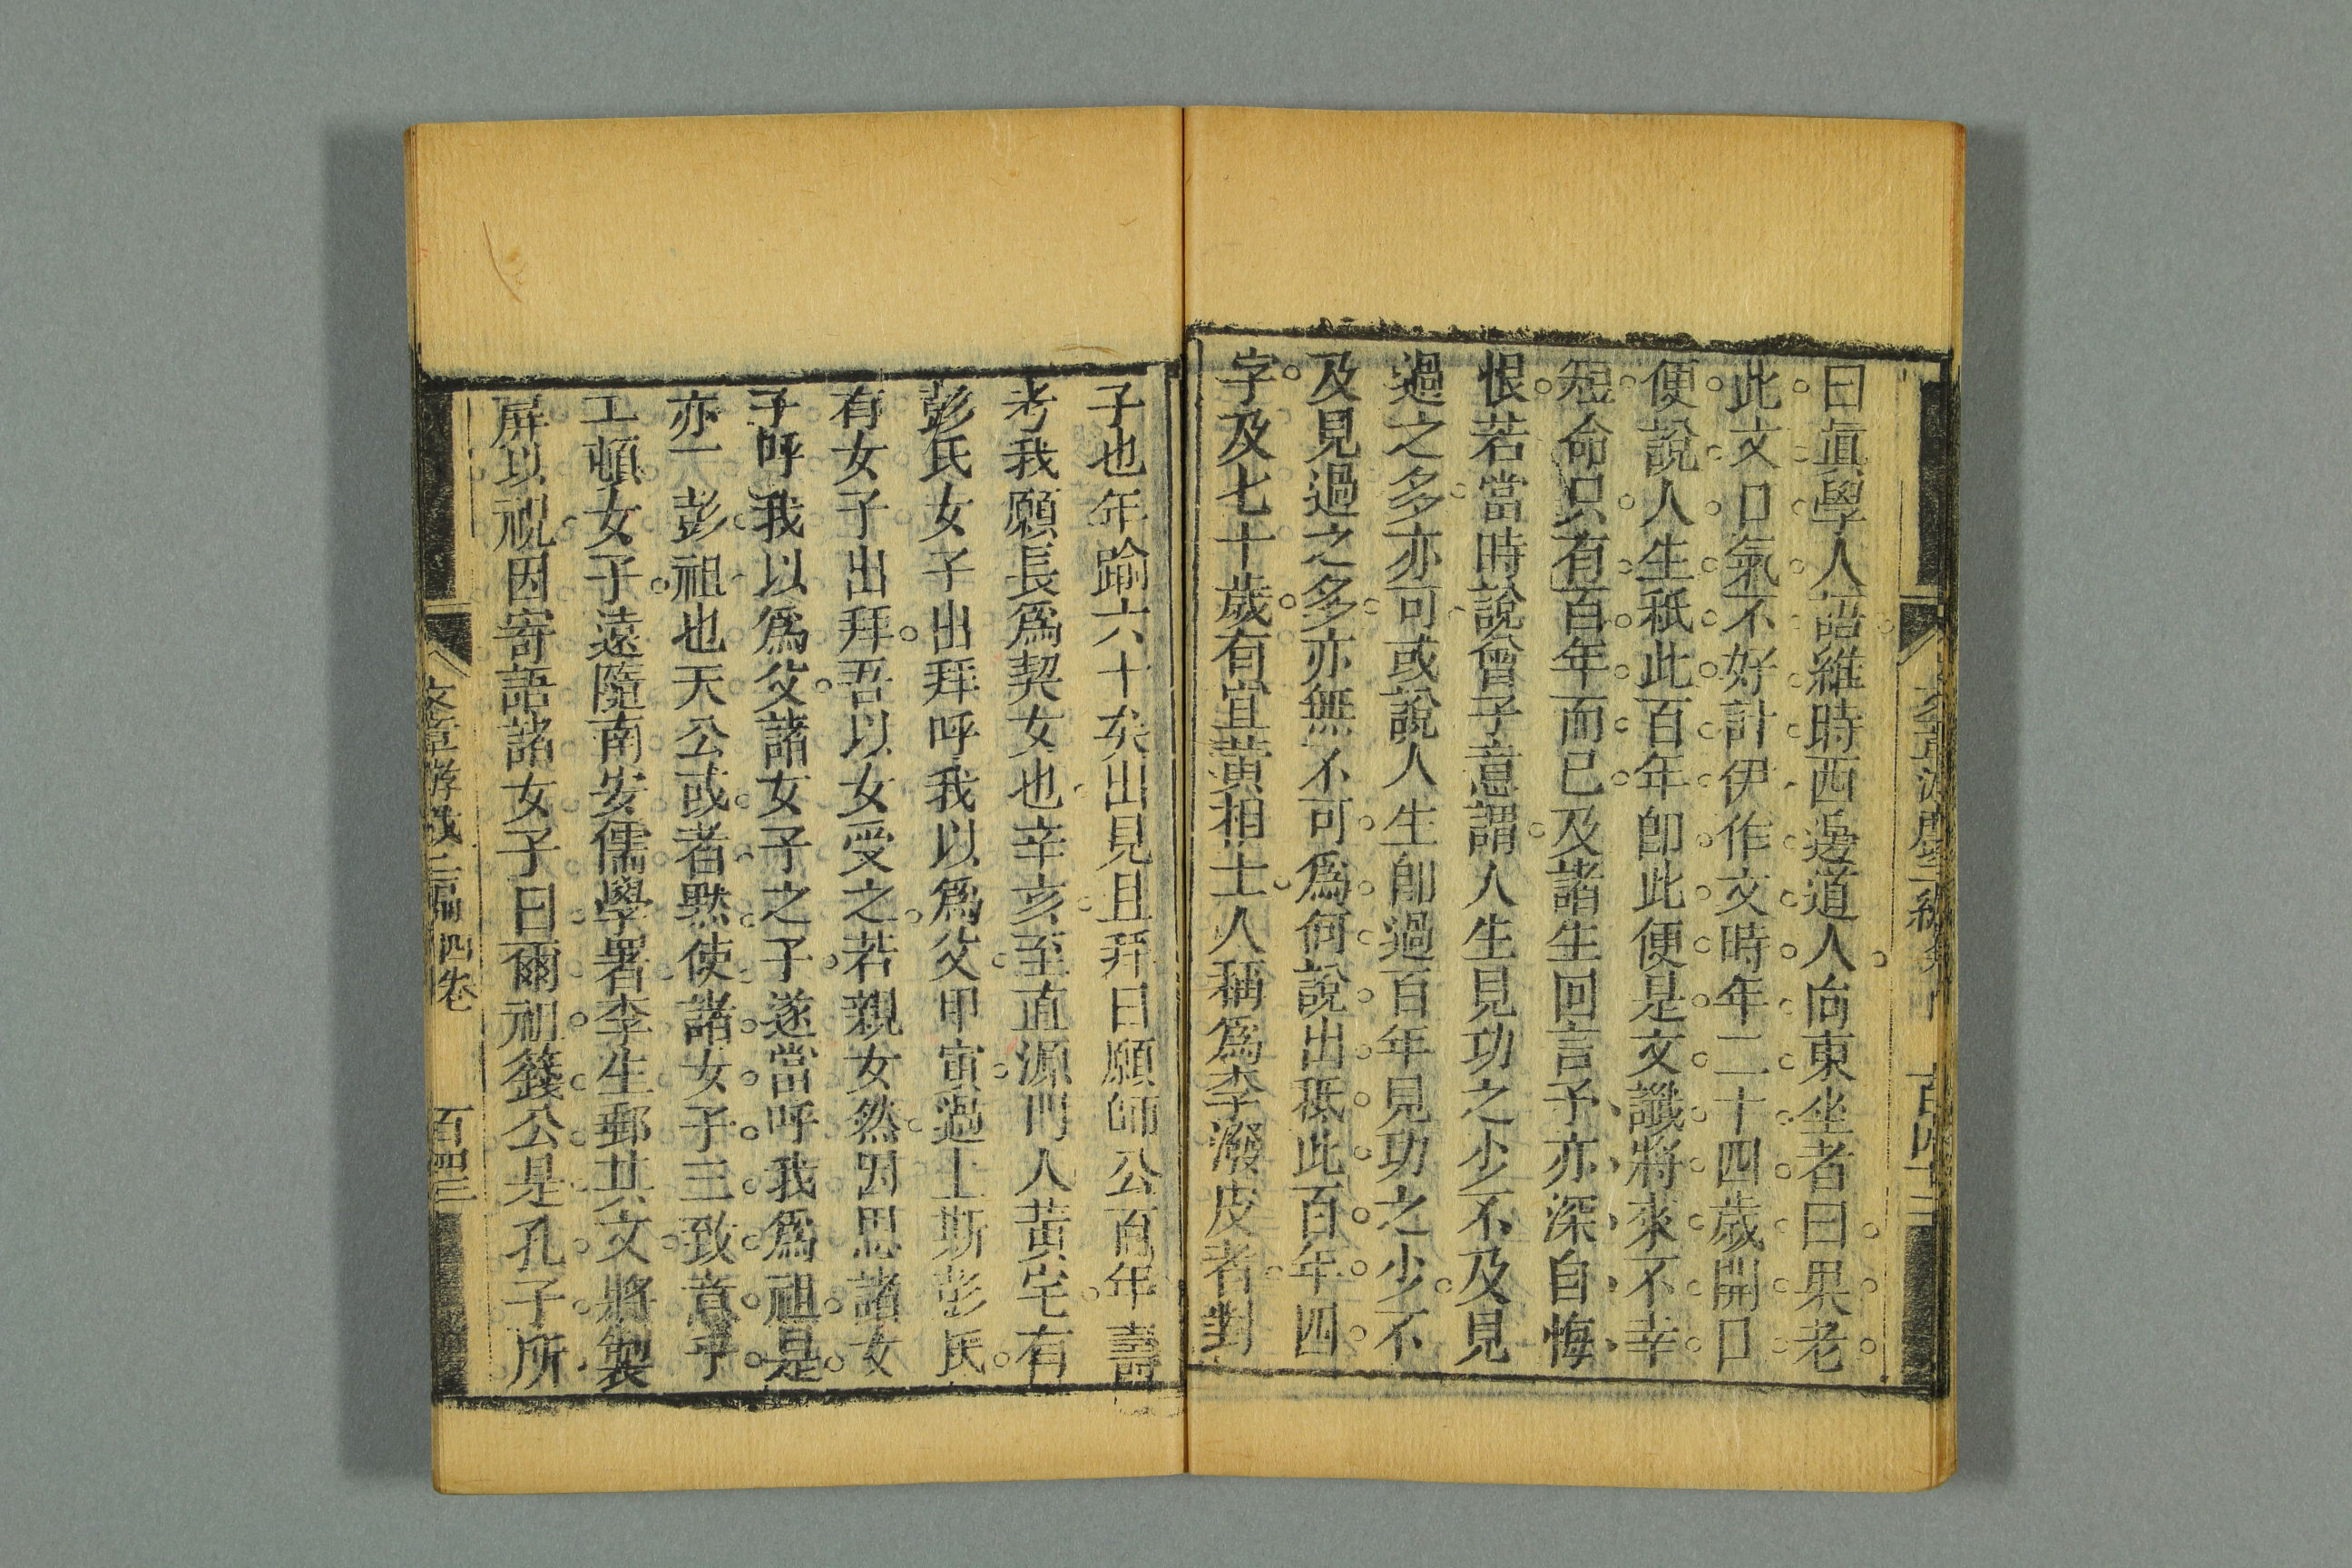 曰真學人語維時西邊道人向東坐者曰果老
此文口氣不好計伊作文時年二十四歲開口
便說人生秖此百年卽此便是文讖將來不幸
短命只有百年而已及諸生回言予亦深自悔
恨若當時說曾子意謂人生見功之少不及見
過之多亦可或說人生卽過百年見功之少不
及見過之多亦無不可爲何說出秖此百年四
字及七十歲有宜黃相士人稱爲李潑皮者對
子也年踰六十矣出見且拜曰願師公百年壽
考我願長爲契女也辛亥至直源門人黃宅有
彭氏女子出拜呼我以爲父甲寅過上斯彭氏
有女子出拜吾以女受之若親女然因思諸女
子呼我以爲父諸女子之子遂當呼我爲祖是
亦一彭祖也天公或者黙使諸女子三致意乎
工頓女子遠隨南安儒學署李生郵其文將製
屏以祝因寄語諸女子曰爾祖籛公是孔子所
文章游戲三編 四卷 百四三